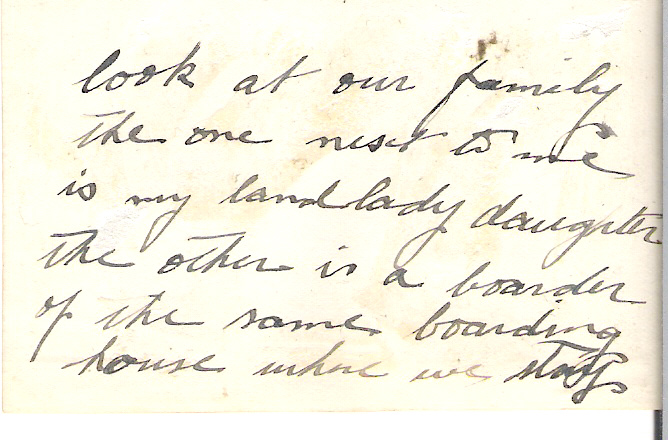 look at our family
the one next to me
is my landlady daughter
the other is a boarder
of the same boarding
house where we stay